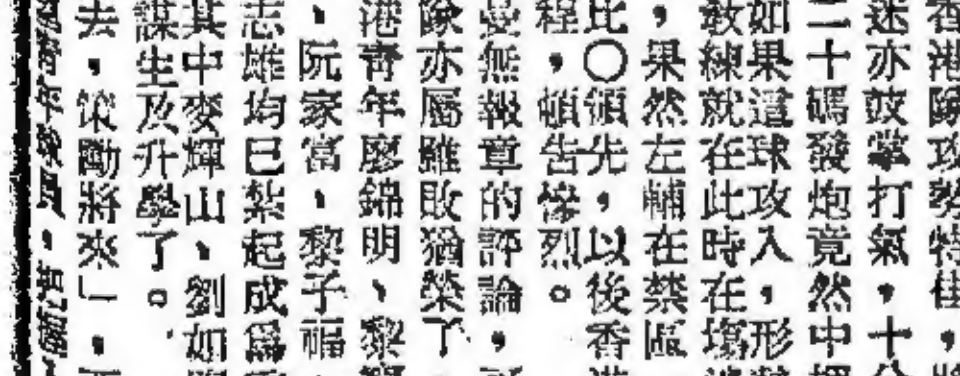 香港隊攻勢特佳，
迷亦鼓掌打氣，十分
二十碼發炮竟然中
如果這球攻入，形
教練就在此時在塲
，果然左輔在禁區
比〇領先，以後香港
程，頓告慘烈。
無報章的評論，
隊亦屬雖敗猶榮了，
港青年廖錦明、黎
、阮家富、黎子福
志雄均已紮起成爲
其中麥輝山、劉如
謀生及升學了。
去，策勵將來」，
年隊員，